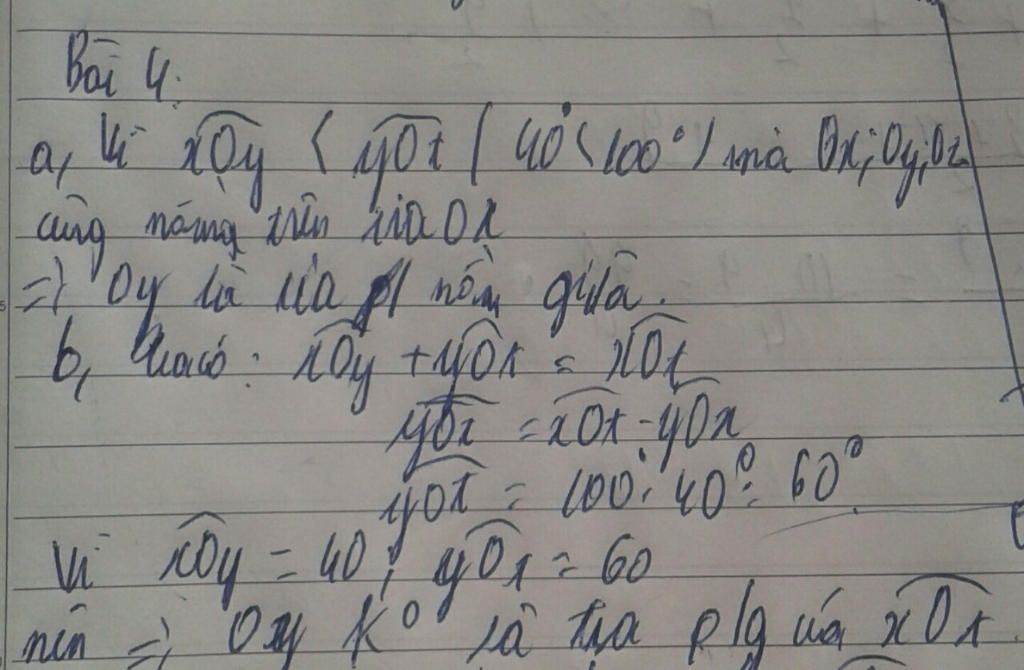 Bài 4:
a, Vì xOy < yOz ( 40° < 100° ) mà Ox; Oy; Oz
cùng nằm trên tia Ox
=> Oy là tia nằm giữa.
b, Ta có: xOy + yOz = xOz
yOz = xOz - yOx
yOz = 100° - 40° = 60°
Vì xOy = 40; yOz = 60
nên => Oy k° là tia p/g của xOz